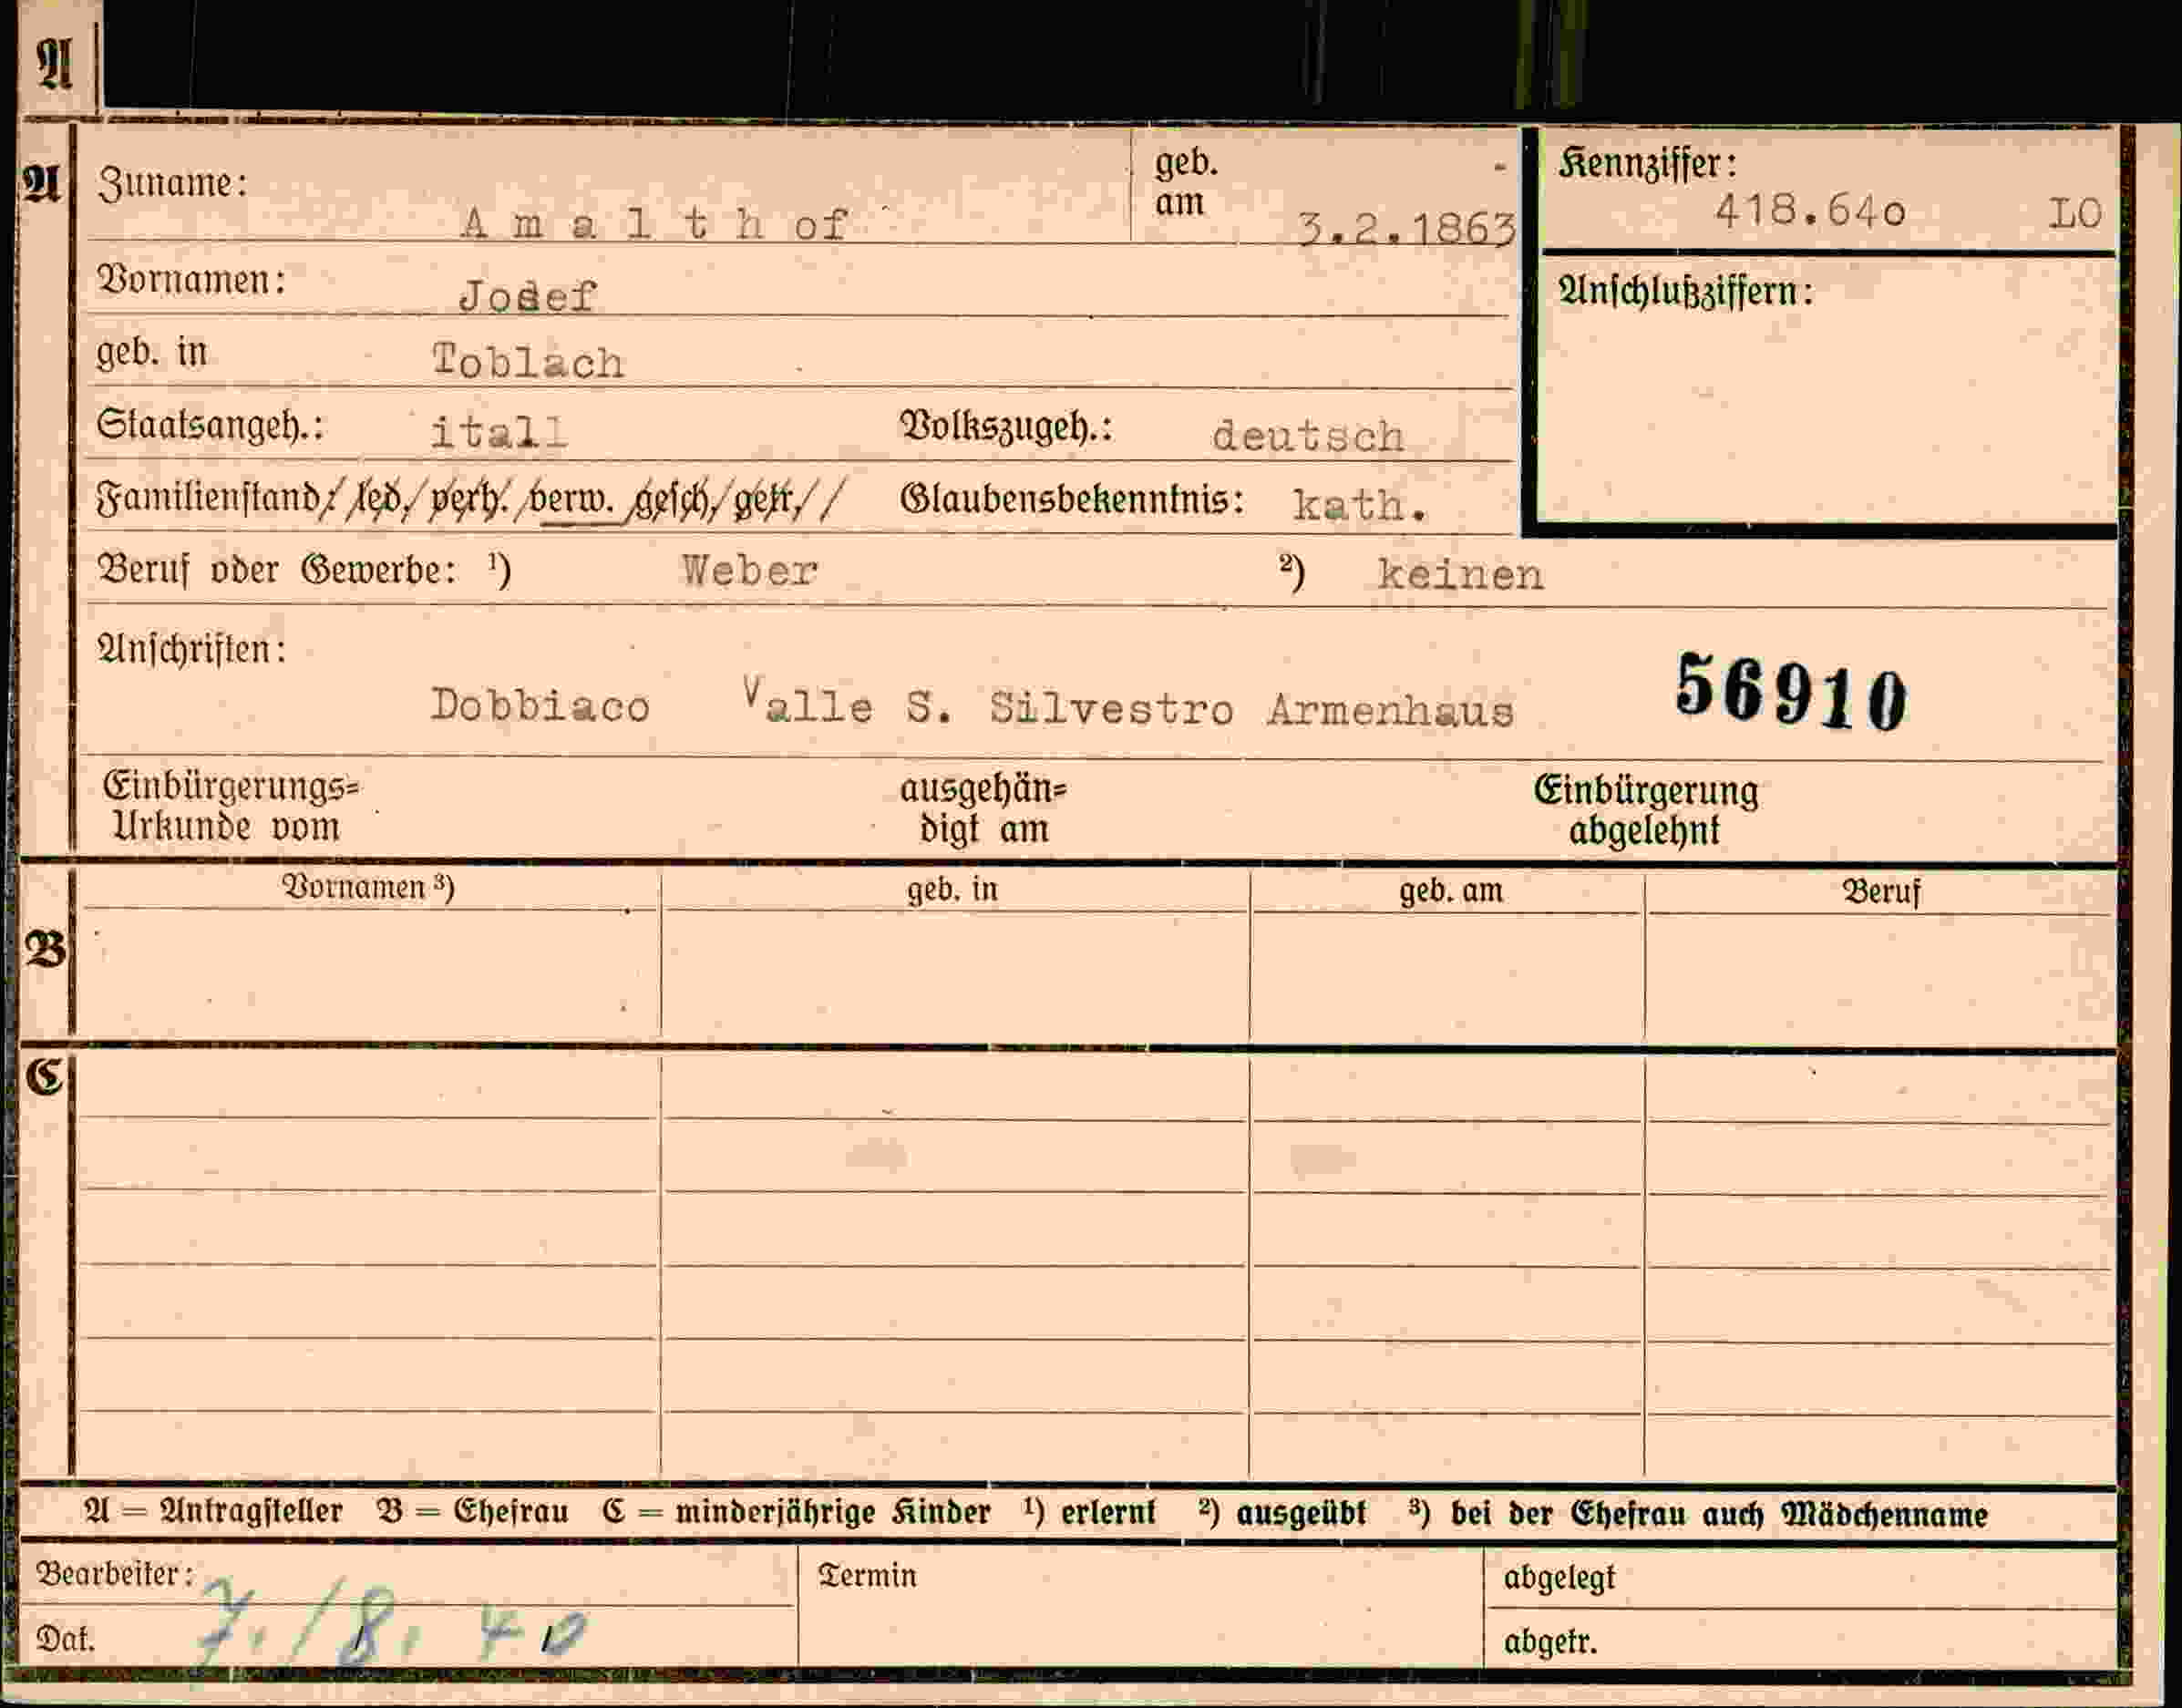 A
A
Zuname: Amalthof
geb. am 3.2.1863
Kennziffer: 418.64o LO
Vornamen: Josef
Anschlußziffern:
geb. in Toblach
Staatsangeh.: itall Volkszugeh.: deutsch
Familienstand: led. verh. verw. gesch. getr. Glaubensbekenntnis: kath.
Beruf oder Gewerbe: ¹) Weber ²) keinen
Anschriften:
Dobbiaco Valle S. Silvestro Armenhaus 56910
Einbürgerungs= ausgehän= Einbürgerung
Urkunde vom digt am abgelehnt
B
Vornamen ³) geb. in geb. am Beruf
C
A = Antragsteller B = Ehefrau C = minderjährige Kinder ¹) erlernt ²) ausgeübt ³) bei der Ehefrau auch Mädchenname
Bearbeiter: Termin abgelegt
Dat. 7./8. 40 abgetr.